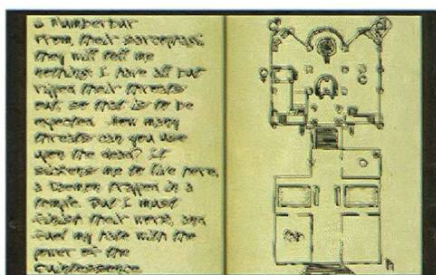 a Numberbur
From their sarcophagi
they will tell me
nothing. I have all but
ripped their throats
out, so that is to be
expected. How many
threats can you use
upon the dead? It
sickens me to live here,
a Daemon trapped in a
temple. But I must
finish their work, and
fuel my hate with the
power of the
Quintessence.